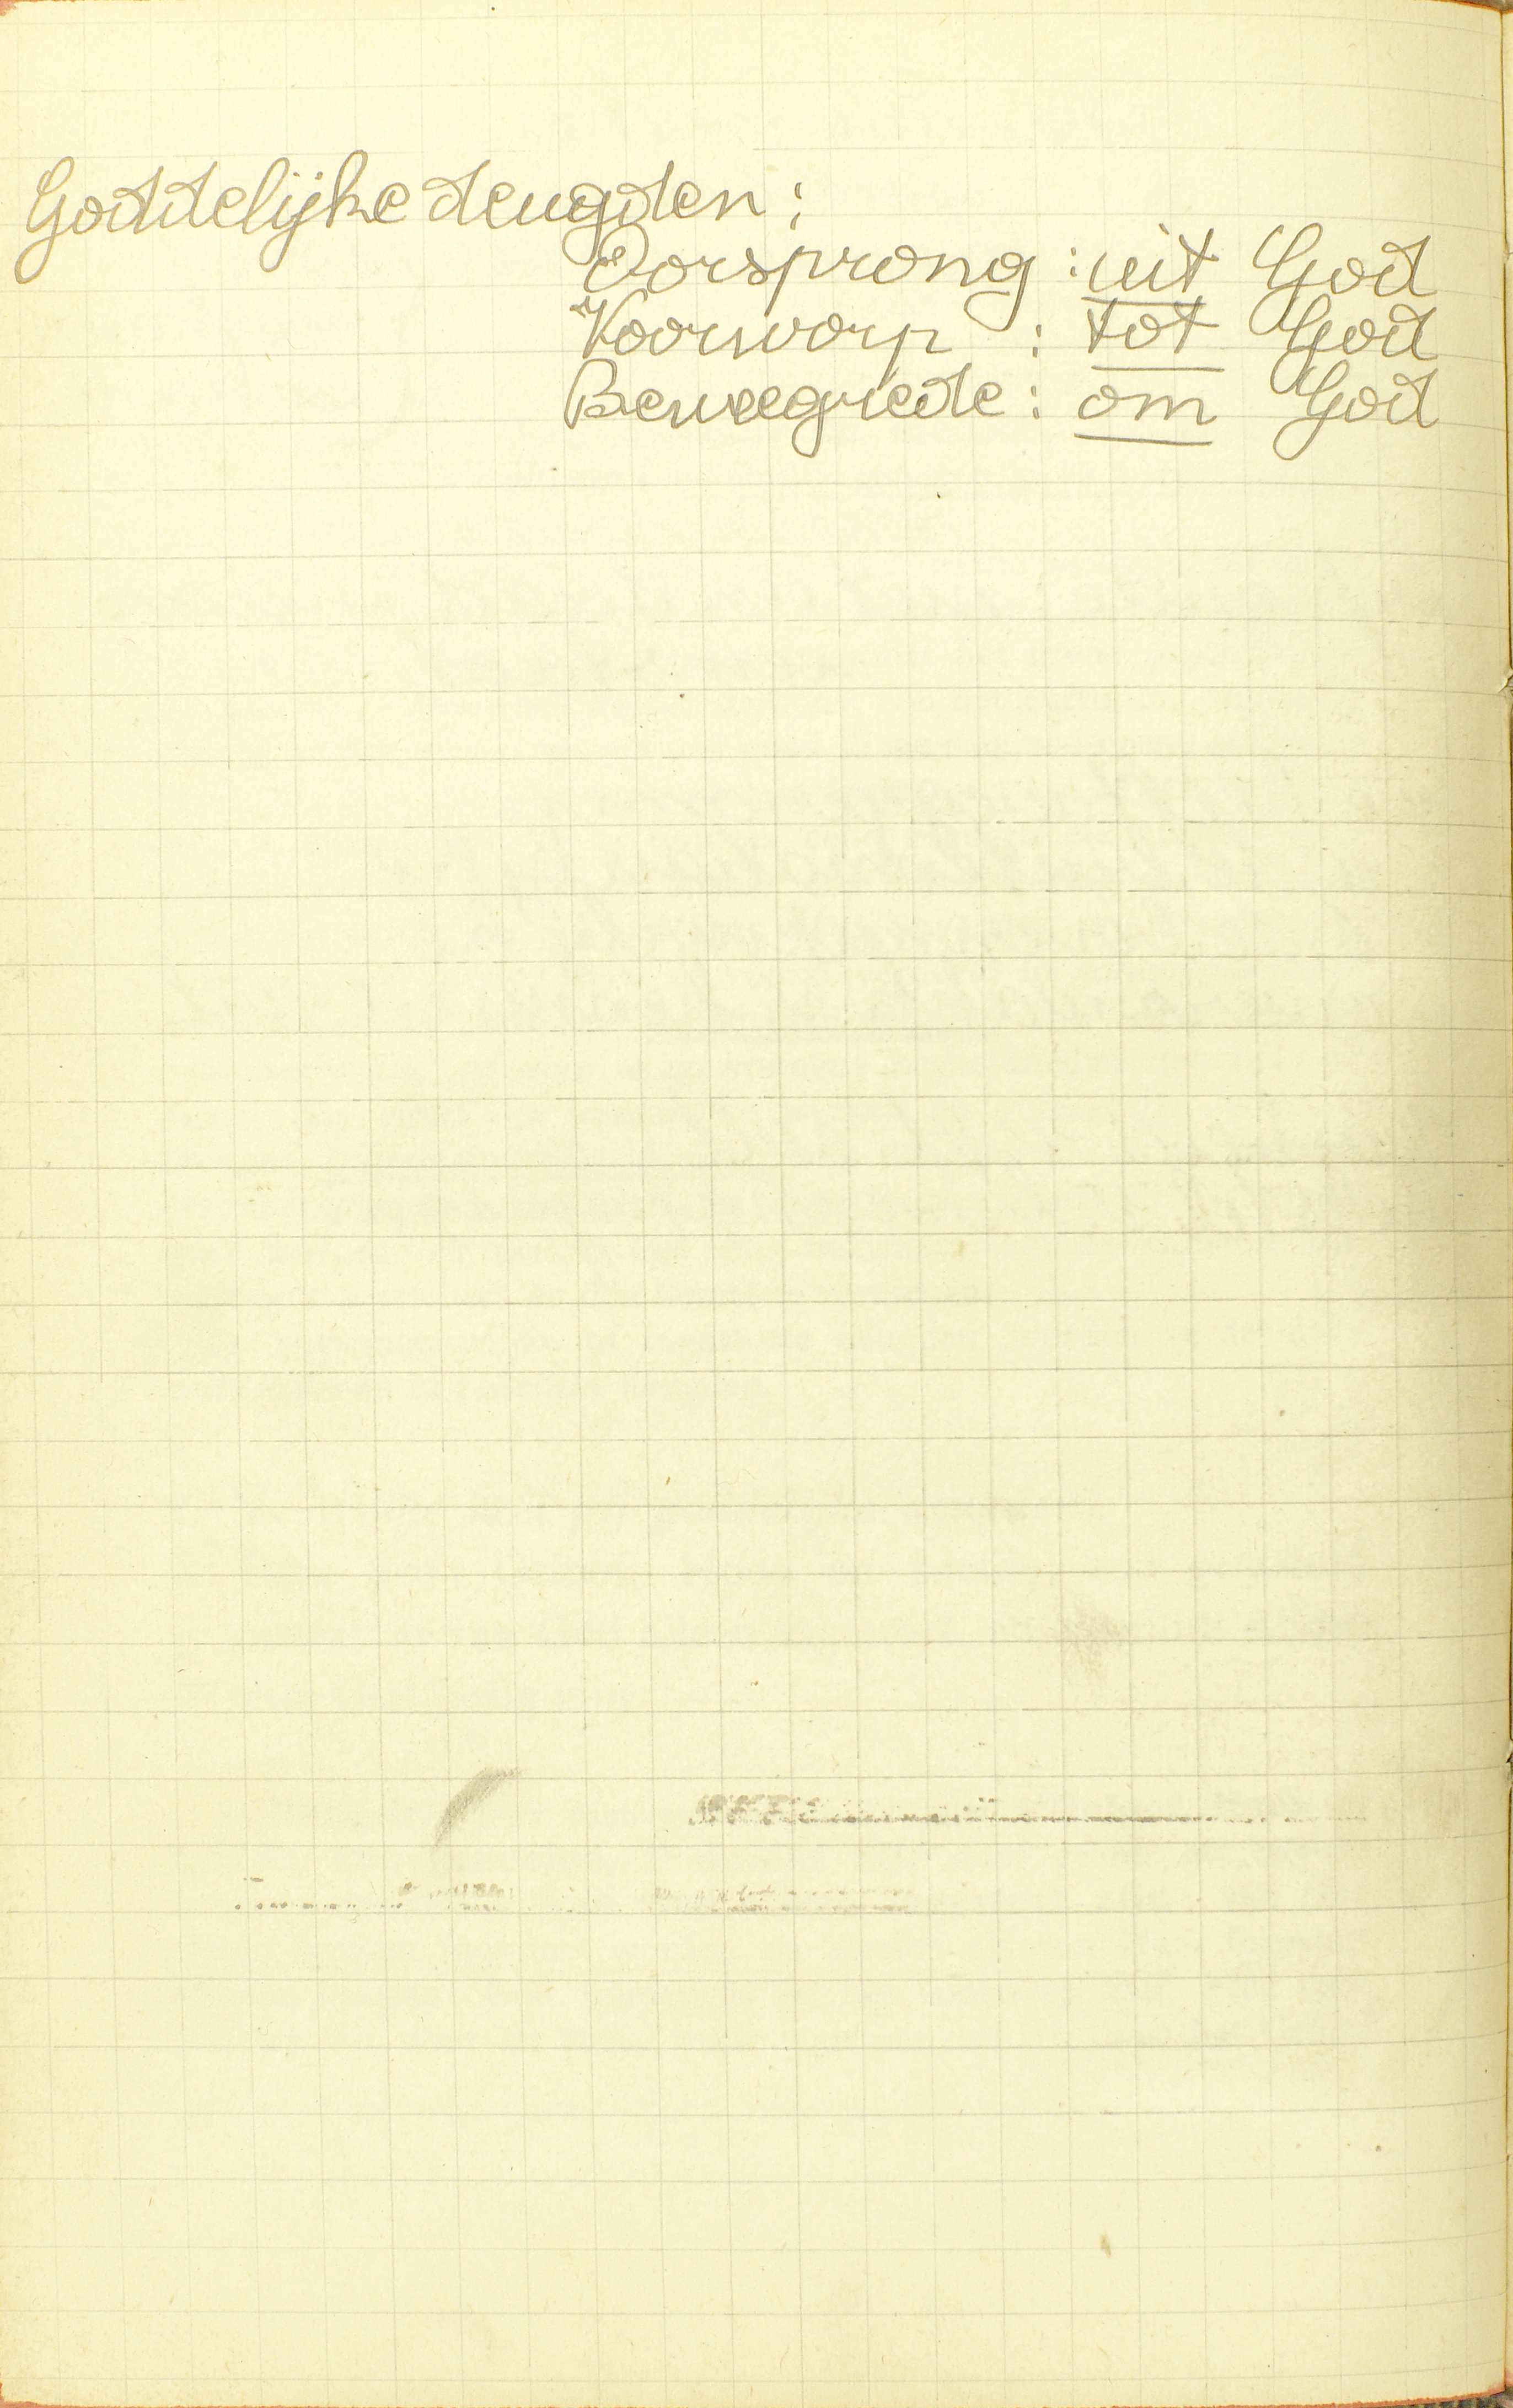 Goddelijke deugden:
Oorsprong : uit God
Voorworp : tot God
Beweegrede : om God